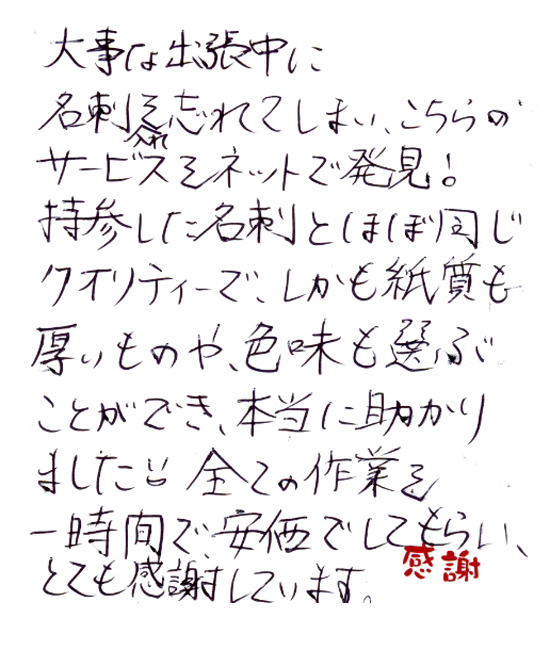 大事な出張中に
名刺入れを忘れてしまい、こちらの
サービスをネットで発見!
持参した名刺とほぼ同じ
クオリティーで、しかも紙質も
厚いものや、色味も選ぶ
ことができ、本当に助かり
ました!! 全ての作業を
一時間で、安価でしてもらい、
とても感謝しています。
感謝